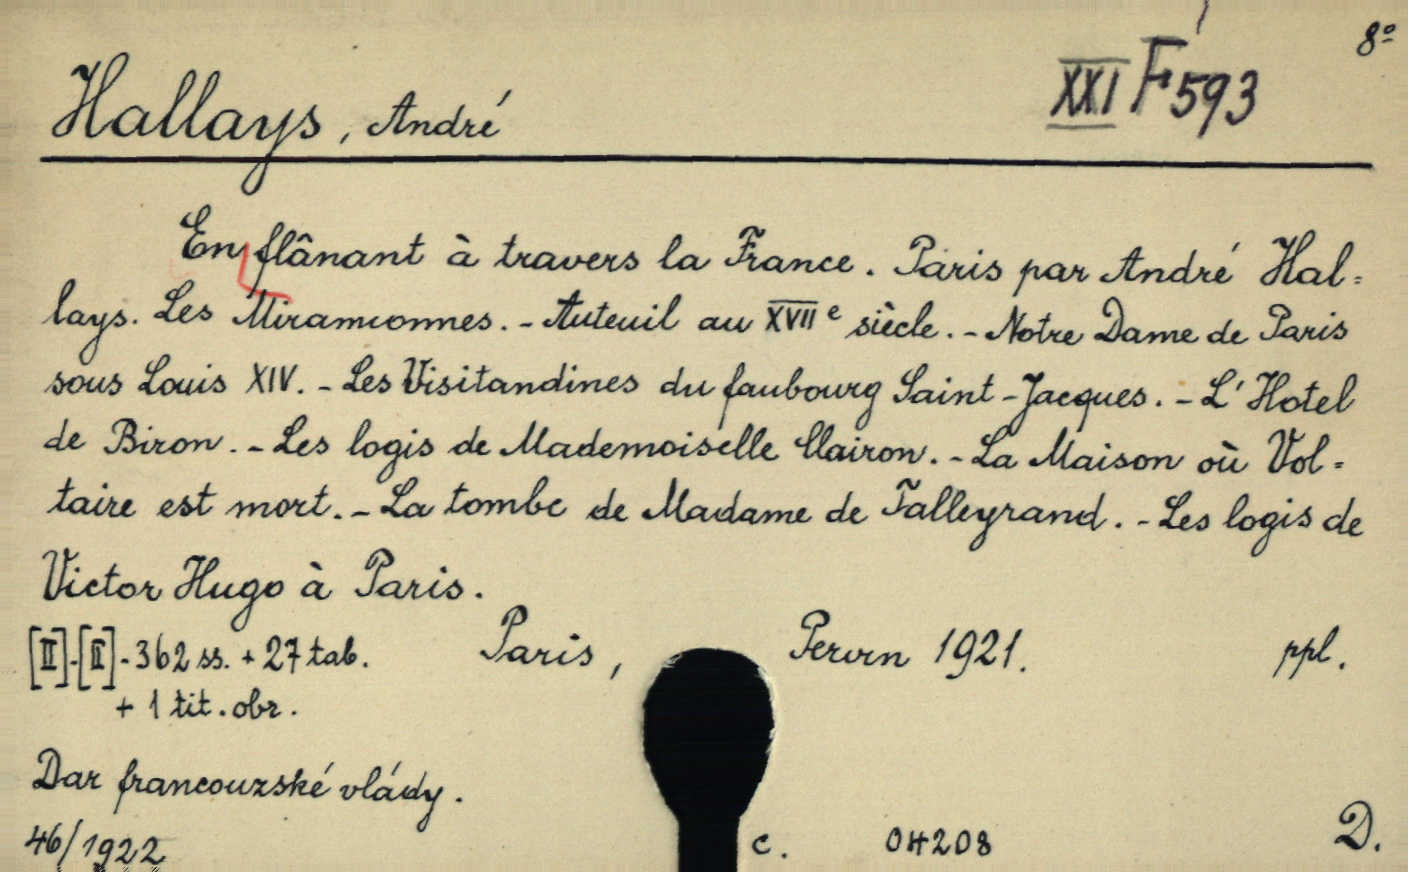 8º
XXI F 593
Hallays, André
En flânant à travers la France. Paris par André Hal=
lays. Les Miramionnes. - Auteuil au XVIIe siècle. - Notre Dame de Paris
sous Louis XIV. - Les Visitandines du faubourg Saint-Jacques. - L'Hotel
de Biron. - Les logis de Mademoiselle Clairon. - La Maison où Vol=
taire est mort. - La tombe de Madame de Talleyrand. - Les logis de
Victor Hugo à Paris.
[II]-[I]-362 ss. + 27 tab. Paris, Perrin 1921. ppl.
+ 1 tit. obr.
Dar francouzské vlády.
46/1922 c. 04208 D.